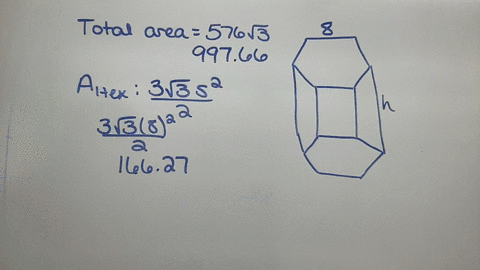 Total area = 576√3
997.66
8
A₁ₕₑₓ : 3√3 s²
2
h
3√3(8)²
2
166.27